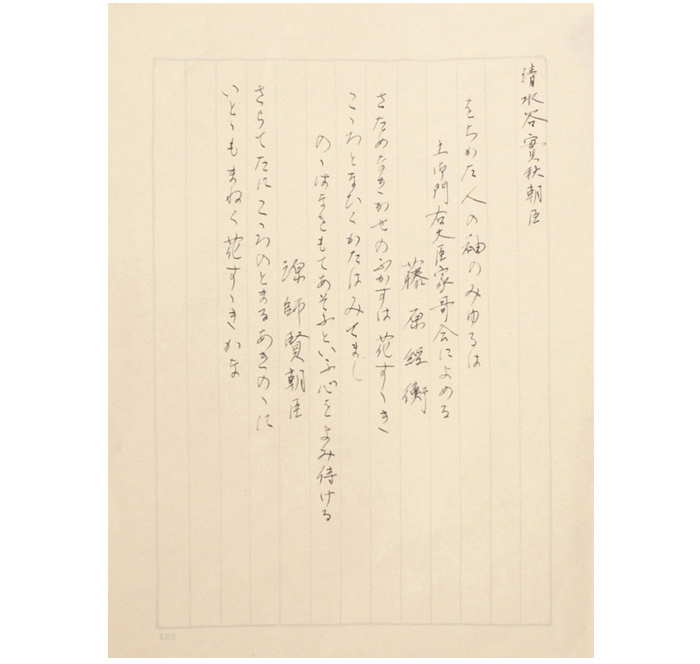 清水谷實秋朝臣
をちかた人の袖のみゆるは
土御門右大臣家哥合によめる
藤原經衡
さためなきかせのふかすは花すゝき
こゝろとなひくかたはみてまし
のゝはなをもてあそふといふ心をよみ侍ける
源師賢朝臣
さらてたにこゝろのとまるあきのゝに
いとゝもまねく花すゝきかな